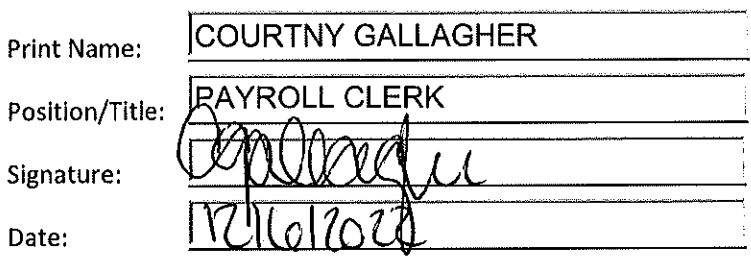 Print Name: COURTNY GALLAGHER
Position/Title: PAYROLL CLERK
Signature: CGallagher
Date: